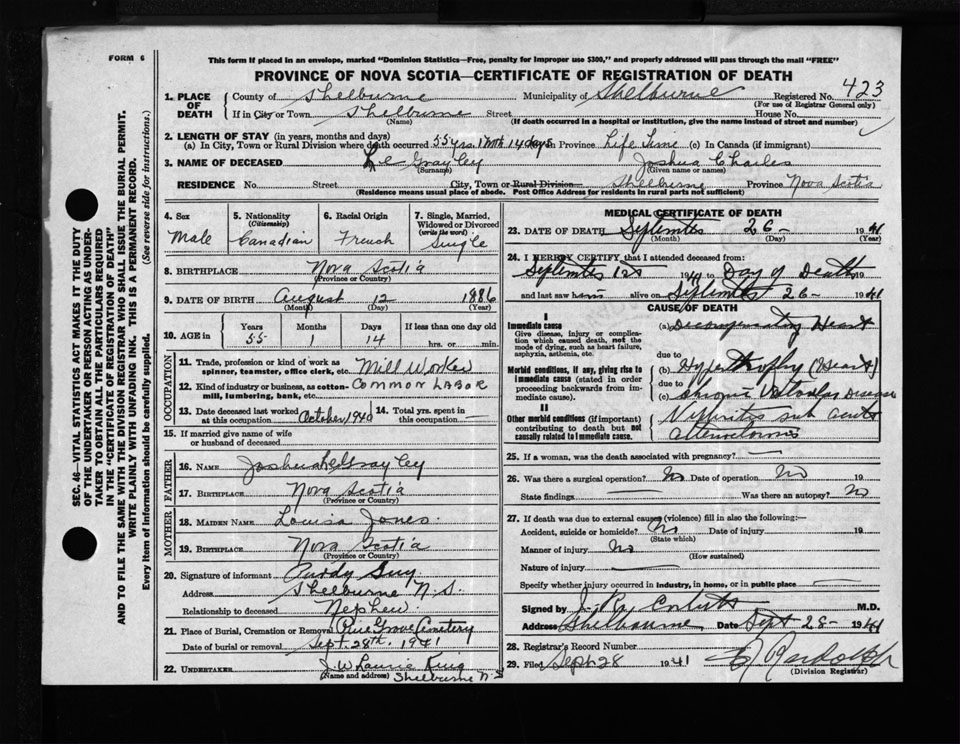 FORM 6
This form if placed in an envelope, marked "Dominion Statistics—Free, penalty for improper use $300," and properly addressed will pass through the mail "FREE"
PROVINCE OF NOVA SCOTIA—CERTIFICATE OF REGISTRATION OF DEATH
1. PLACE OF DEATH County of Shelburne Municipality of Shelburne Registered No. 423
(For use of Registrar General only)
If in City or Town Shelburne Street House No.
(Name) (If death occurred in a hospital or institution, give the name instead of street and number)
2. LENGTH OF STAY (in years, months and days)
(a) In City, Town or Rural Division where death occurred 55 yrs. 1 Mth 14 days Province Life Time (c) In Canada (if immigrant)
3. NAME OF DECEASED Le Grayley Joshua Charles
(Surname) (Given name or names)
RESIDENCE No. Street City, Town or Rural Division Shelburne Province Nova Scotia
(Residence means usual place of abode. Post Office Address for residents in rural parts not sufficient)
4. Sex Male
5. Nationality (Citizenship) Canadian
6. Racial Origin French
7. Single, Married, Widowed or Divorced (write the word) Single
8. BIRTHPLACE Nova Scotia
(Province or Country)
9. DATE OF BIRTH August 12 1886
(Month) (Day) (Year)
10. AGE in Years 55 Months 1 Days 14 If less than one day old hrs. or min.
OCCUPATION
11. Trade, profession or kind of work as spinner, teamster, office clerk, etc. Mill Worker
12. Kind of industry or business, as cotton-mill, lumbering, bank, etc. COMMON LABOR
13. Date deceased last worked at this occupation October 1940 14. Total yrs. spent in this occupation —
15. If married give name of wife or husband of deceased
FATHER
16. NAME Joshua LeGrayley
17. BIRTHPLACE Nova Scotia
(Province or Country)
MOTHER
18. MAIDEN NAME Louisa Jones
19. BIRTHPLACE Nova Scotia
(Province or Country)
20. Signature of informant Guy
Address Shelburne N.S.
Relationship to deceased Nephew
21. Place of Burial, Cremation or Removal Pine Grove Cemetery
Date of burial or removal Sept. 28th. 1941
22. UNDERTAKER J W Laurie King
(Name and address) Shelburne N.S
MEDICAL CERTIFICATE OF DEATH
23. DATE OF DEATH September 26- 1941
(Month) (Day) (Year)
24. I HEREBY CERTIFY that I attended deceased from:
September 1st 1941 to Day of Death 19
and last saw him alive on September 26- 1941
CAUSE OF DEATH
I
Immediate cause
Give disease, injury or complication which caused death, not the mode of dying, such as heart failure, asphyxia, asthenia, etc.
(a) Decompensating Heart
due to
Morbid conditions, if any, giving rise to immediate cause (stated in order proceeding backwards from immediate cause).
(b) Hypertrophy (Heart)
due to
(c) Chronic Valvular Disease
II
Other morbid conditions (if important) contributing to death but not causally related to immediate cause.
Nephritis sub acute
25. If a woman, was the death associated with pregnancy? —
26. Was there a surgical operation? No Date of operation No 19
State findings — Was there an autopsy? No
27. If death was due to external causes (violence) fill in also the following:—
Accident, suicide or homicide? No Date of injury 19
(State which)
Manner of injury No
(How sustained)
Nature of injury —
Specify whether injury occurred in industry, in home, or in public place —
Signed by M.D.
Address Shelbourne, Date Sept 28- 1941
28. Registrar's Record Number
29. Filed Sept 28 1941
(Division Registrar)
SEC. 46—VITAL STATISTICS ACT MAKES IT THE DUTY
OF THE UNDERTAKER OR PERSON ACTING AS UNDER-
TAKER TO OBTAIN ALL THE PARTICULARS REQUIRED
IN THE "CERTIFICATE OF REGISTRATION OF DEATH"
AND TO FILE THE SAME WITH THE DIVISION REGISTRAR WHO SHALL ISSUE THE BURIAL PERMIT.
WRITE PLAINLY WITH UNFADING INK. THIS IS A PERMANENT RECORD.
Every item of information should be carefully supplied. (See reverse side for instructions.)